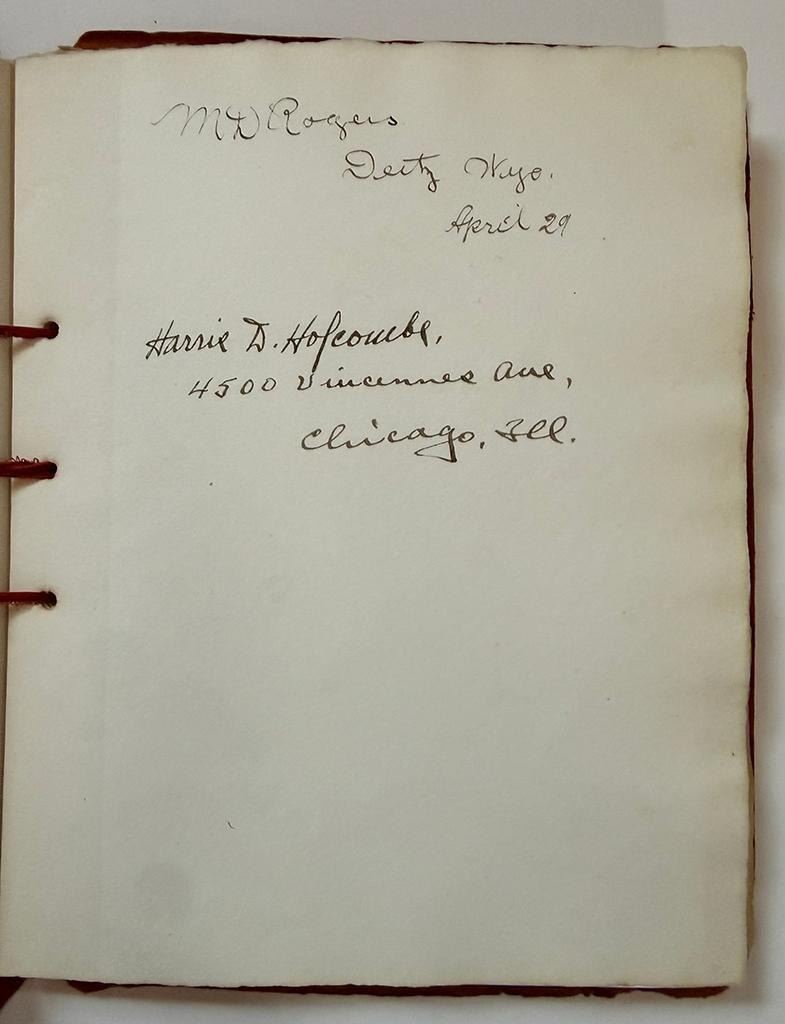 M D Rogers
Deitz Wyo.
April 29
Harrie D. Hofcombe,
4500 Vincennes Ave,
Chicago, Ill.